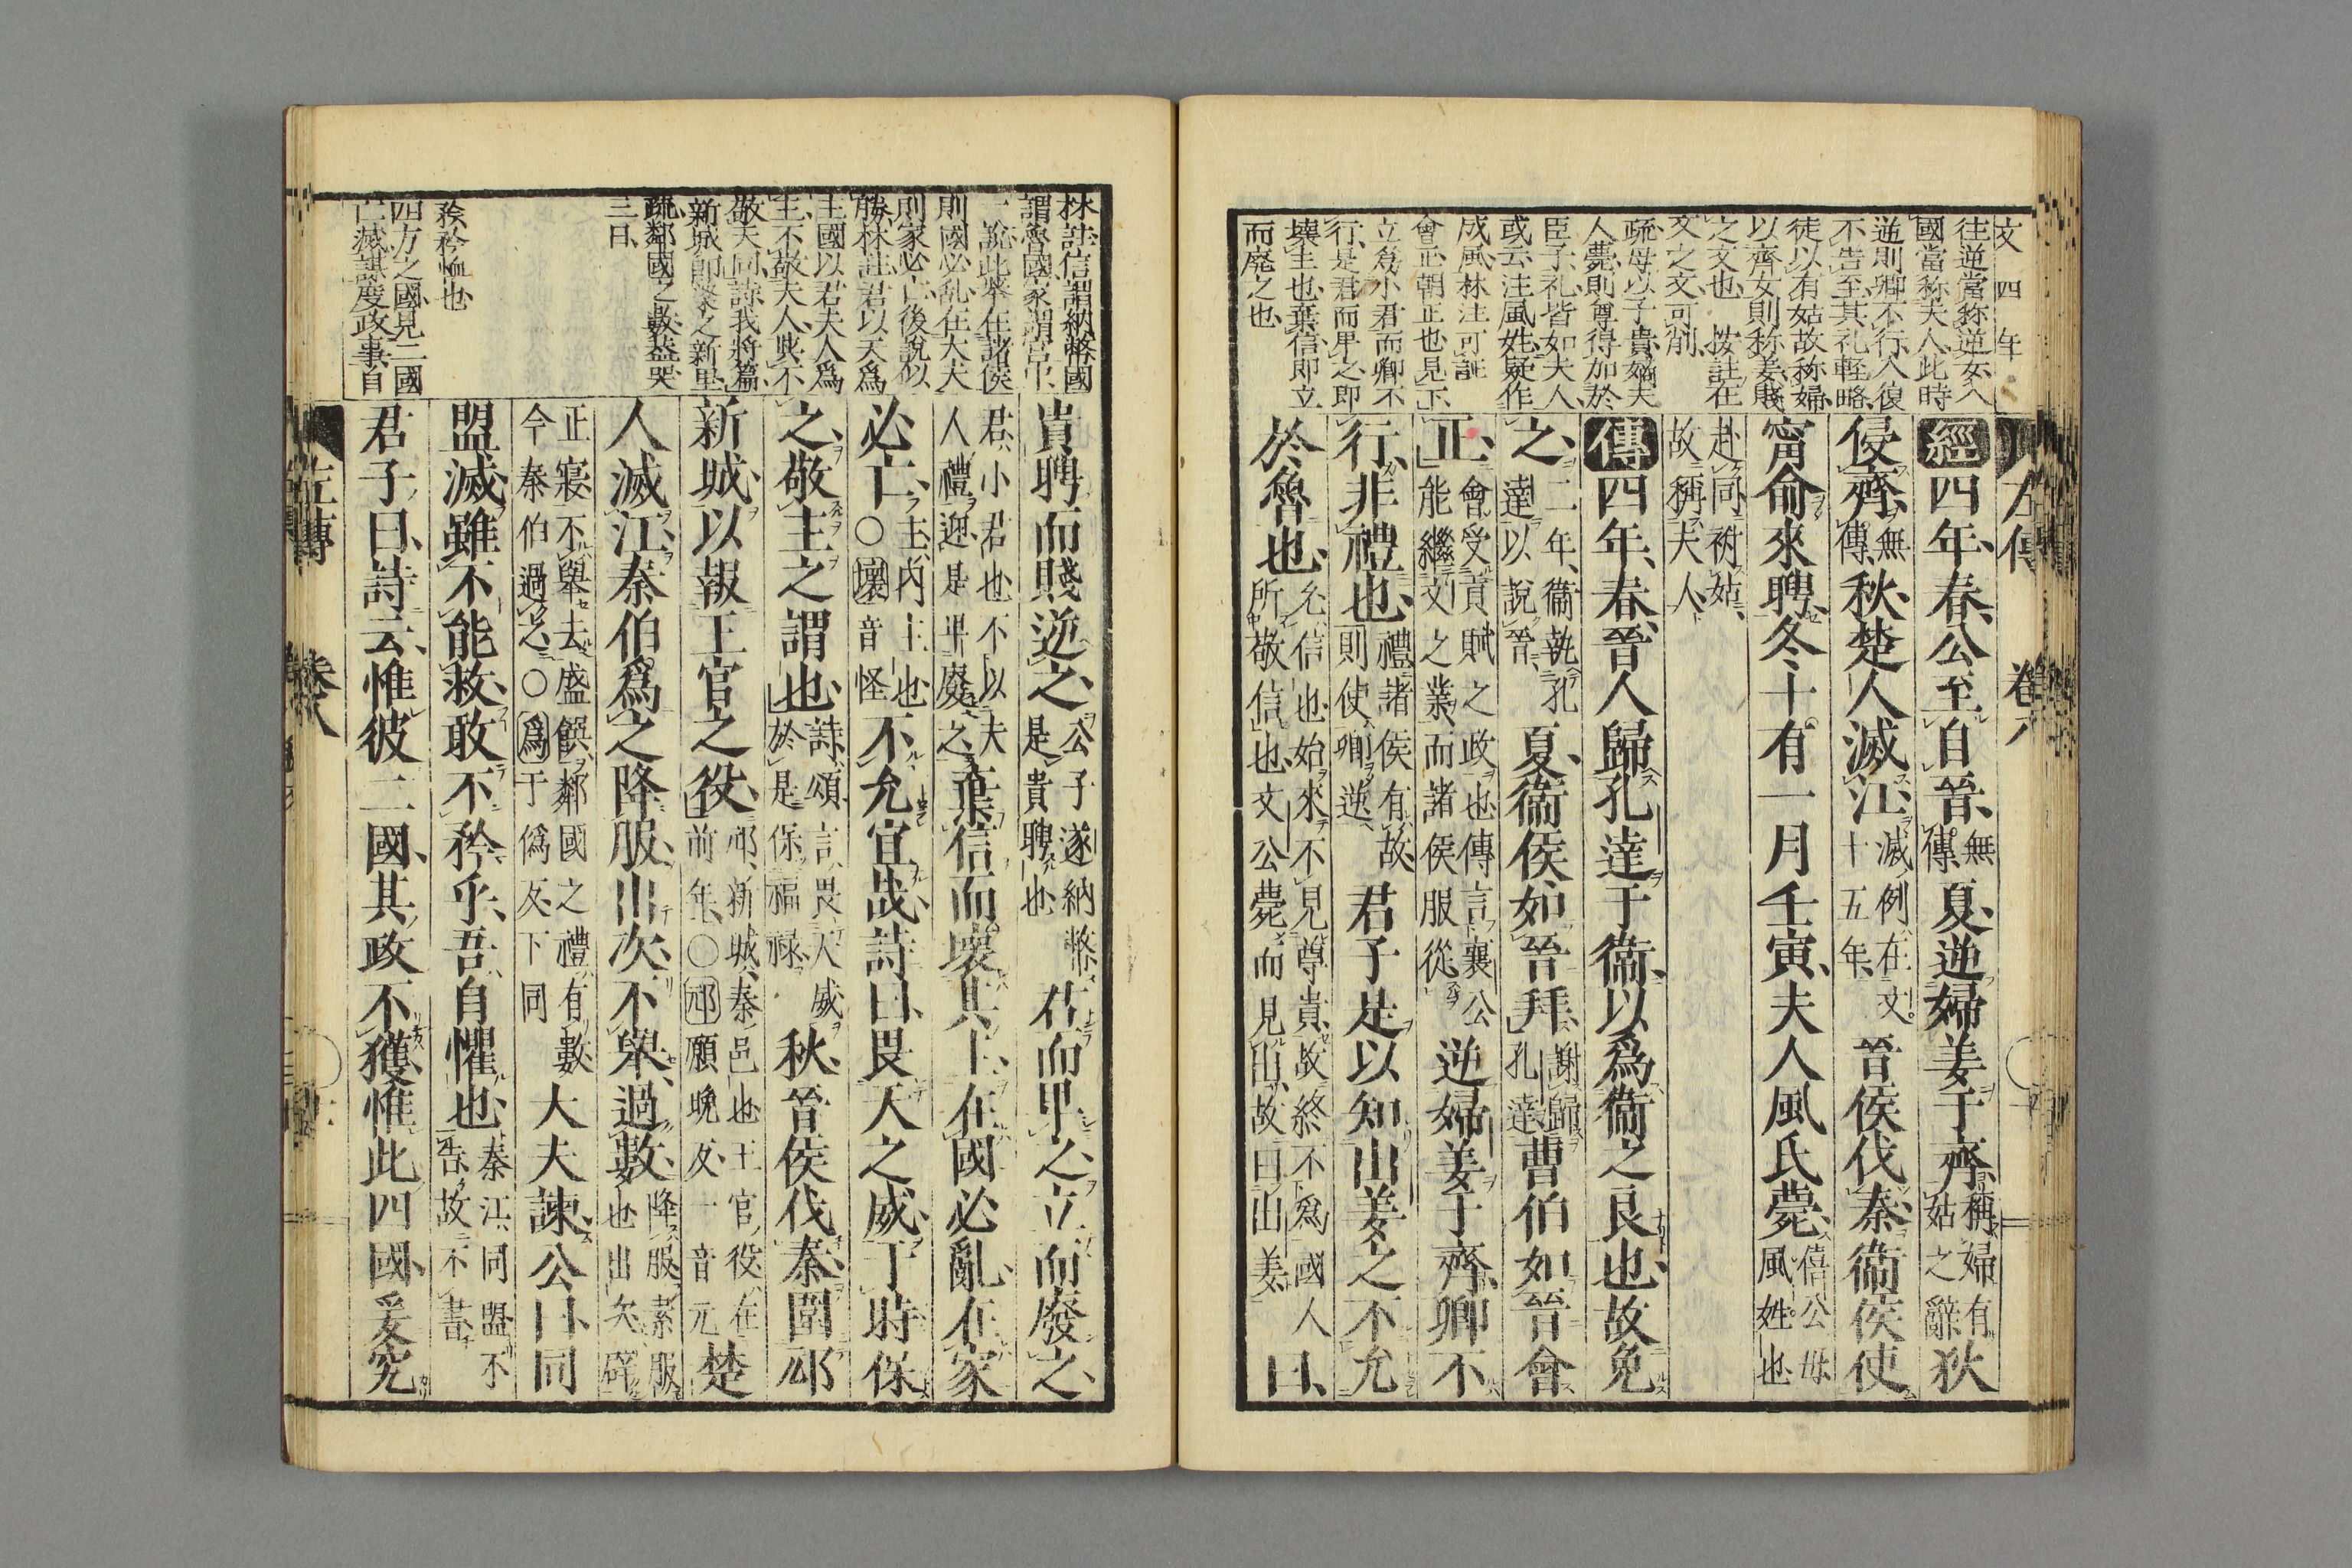 文四年
往逆當称逆女入
國當称夫人此時
逆則卿不行入復
不告至其礼輕略
徒以有姑故称婦
以齊女則称姜賤
之文也 按註在
文之文可削
疏母以子貴嫡夫
人薨則尊得加於
臣子礼皆如夫人
或云注風姓疑作
成風林注可証
會正朝正也見下
立為小君而卿不
行是君而卑之即
壊主也葉信即立
而廢之也
左傳 卷八
經四年春公至自晉無傳夏逆婦姜于齊稱婦有姑之辭狄
侵齊無傳秋楚人滅江滅例在文十五年晉侯伐秦衞侯使
甯俞來聘冬十有一月壬寅夫人風氏薨僖公母風姓也
赴同祔姑故稱夫人
傳四年春晉人歸孔達于衞以爲衞之良也故免
之二年衞執孔達以說晉夏衞侯如晉拜謝歸孔達曹伯如晉會
正會受貢賦之政也傳言襄公能繼文之業而諸侯服從逆婦姜于齊卿不
行非禮也禮諸侯有故則使卿逆君子是以知出姜之不允
於魯也允信也始來不見尊貴故終不爲國人所敬信也文公薨而見出故曰出姜曰
林註信謂納幣國
謂魯國家謂宮中
一說此葉在諸侯
則國必乱在大夫
則家必亡後說似
勝林註君以夫爲
主國以君夫人爲
主不敬夫人與不
敬天同詩我將篇
新城即梁之新里
疏鄰國之數蓋哭
三日
矜矜恤也
四方之國見二國
亡滅謀度政事自
貴聘而賤逆之公子遂納幣是貴聘也君而卑之立而廢之
君小君也不以夫人禮迎是卑廢之棄信而壞其主在國必亂在家
必亡主內主也○壞音怪不允宜哉詩曰畏天之威于時保
之敬主之謂也詩頌言畏天威於是保福祿秋晉侯伐秦圍邧
新城以報王官之役邧新城秦邑也王官役在前年○邧願晚反一音元楚
人滅江秦伯爲之降服出次不舉過數降服素服也出次辟
正寢不舉去盛饌鄰國之禮有數今秦伯過之○爲于僞反下同大夫諫公曰同
盟滅雖不能救敢不矜乎吾自懼也秦江同盟不告故不書
君子曰詩云惟彼二國其政不獲惟此四國爰究
左傳 卷八